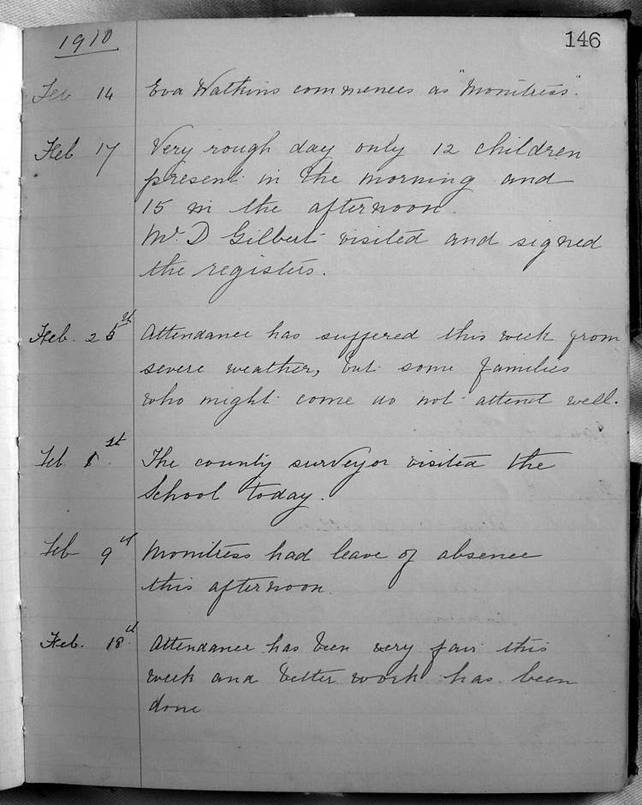 1910
146
Feb 14 Eva Watkins commences as "Monitress".
Feb 17 Very rough day only 12 children
present in the morning and
15 in the afternoon.
Mr D Gilbert visited and signed
the registers.
Feb. 25th Attendance has suffered this week from
severe weather, but some families
who might come do not attend well.
Feb 1st The county surveyor visited the
School today.
Feb 9th Monitress had leave of absence
this afternoon.
Feb. 18th Attendance has been very fair this
week and better work has been
done